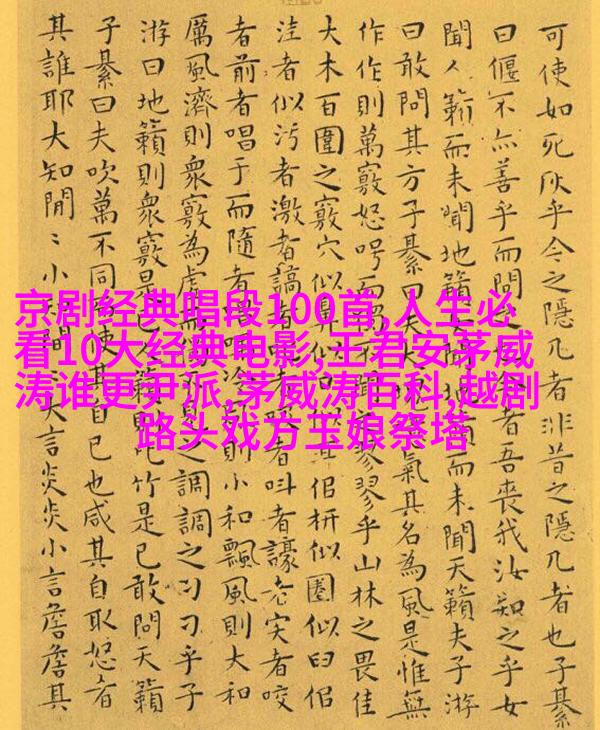 京剧经典唱段100首,人生必
看10大经典电影,王君安茅威
涛谁更尹派,茅威涛百科,越剧
路头戏方玉娘祭塔
可使如死灰乎今之隱几者非昔之隱几者也子綦
曰偃不亦善乎而問之者吾喪我汝知之乎女
聞人籟而未聞地籟地籟而未聞天籟夫子游
曰敢問其方子綦曰夫氣其名為風是惟無
作作則萬竅怒呺而獨不聞翏翏乎山林之畏佳
大木百圍之竅穴似鼻似枅似圈似臼似
洼者似污者激者謞者叫者譹者宎者咬
者前者唱于而隨者則小和飄風則大和
厲風濟則眾竅為虛之調調之刁刁乎子
游曰地籟則眾竅是已比竹是已敢問天籟
子綦曰夫吹萬不同使其自已也咸其自取怒者
其誰耶大知閒〻小大言炎炎小言詹詹其